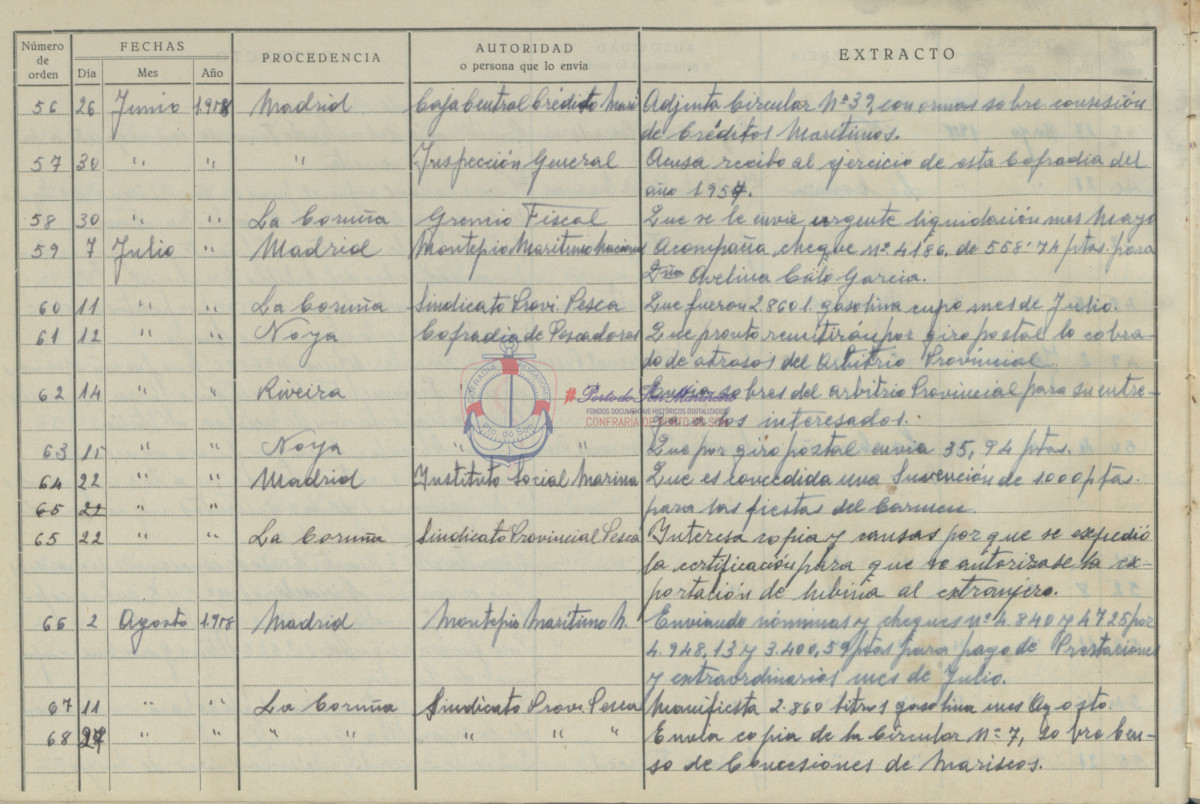 Número de orden FECHAS PROCEDENCIA AUTORIDAD EXTRACTO
Dia Mes Año o persona que lo envía
56 26 Junio 1.958 Madrid Caja Central Crédito Mari Adjunta Circular Nº 32 con ormas sobre consesión
de Créditos Marítimos.
57 30 " " " Inspección General Acusa recibo al ejercicio de esta Cofradia del
año 1957.
58 30 " " La Coruña Gremio Fiscal Que se le envie urgente liquidación mes Mayo
59 7 Julio " Madrid Montepio Maritimo Nacional Acompaña cheque nº 4186, de 558'74 ptas. para
Dña Avelina Calo Garcia.
60 11 " " La Coruña Sindicato Provi. Pesca Que fueron 2.860 l. gasolina cupo mes de Julio.
61 12 " " Noya Cofradia de Pescadores Que pronto remitirán por giro postal lo cobra-
do de atrasos del Arbitrio Provincial
62 14 " " Riveira sobres del arbitrio Provincial para su entre-
ga a los interesados.
CONFRARÍA PESCADORES
Pto. do Son
#Porto do Son Mariñeiro
FONDOS DOCUMENTAIS HISTÓRICOS DIXITALIZADOS
CONFRARÍA DE PORTO DO SON
63 15 " " Noya " " Que por giro postal envia 35,94 ptas.
64 22 " " Madrid Instituto Social Marina Que es concedida una Suvención de 1000 ptas.
65 22 " " para las fiestas del Carmen
65 22 " " La Coruña Sindicato Provincial Pesca Interesa copia y causas por que se expedió
la certificación para que se autorizase la ex-
portación de lubina al extranjero.
66 2 Agosto 1.958 Madrid Montepio Marítimo N. Enviando nóminas y cheques nº 4.840 y 4725 por
4.948,13 y 3.400,59 ptas para pago de Prestaciones
y extraordinarios mes de Julio.
67 11 " " La Coruña Sindicato Provi. Pesca Manifiesta 2.860 litros gasolina mes Agosto.
68 27 " " " " " " " Envia copia de la Circular Nº 7, sobre Cen-
so de Concesiones de Mariscos.